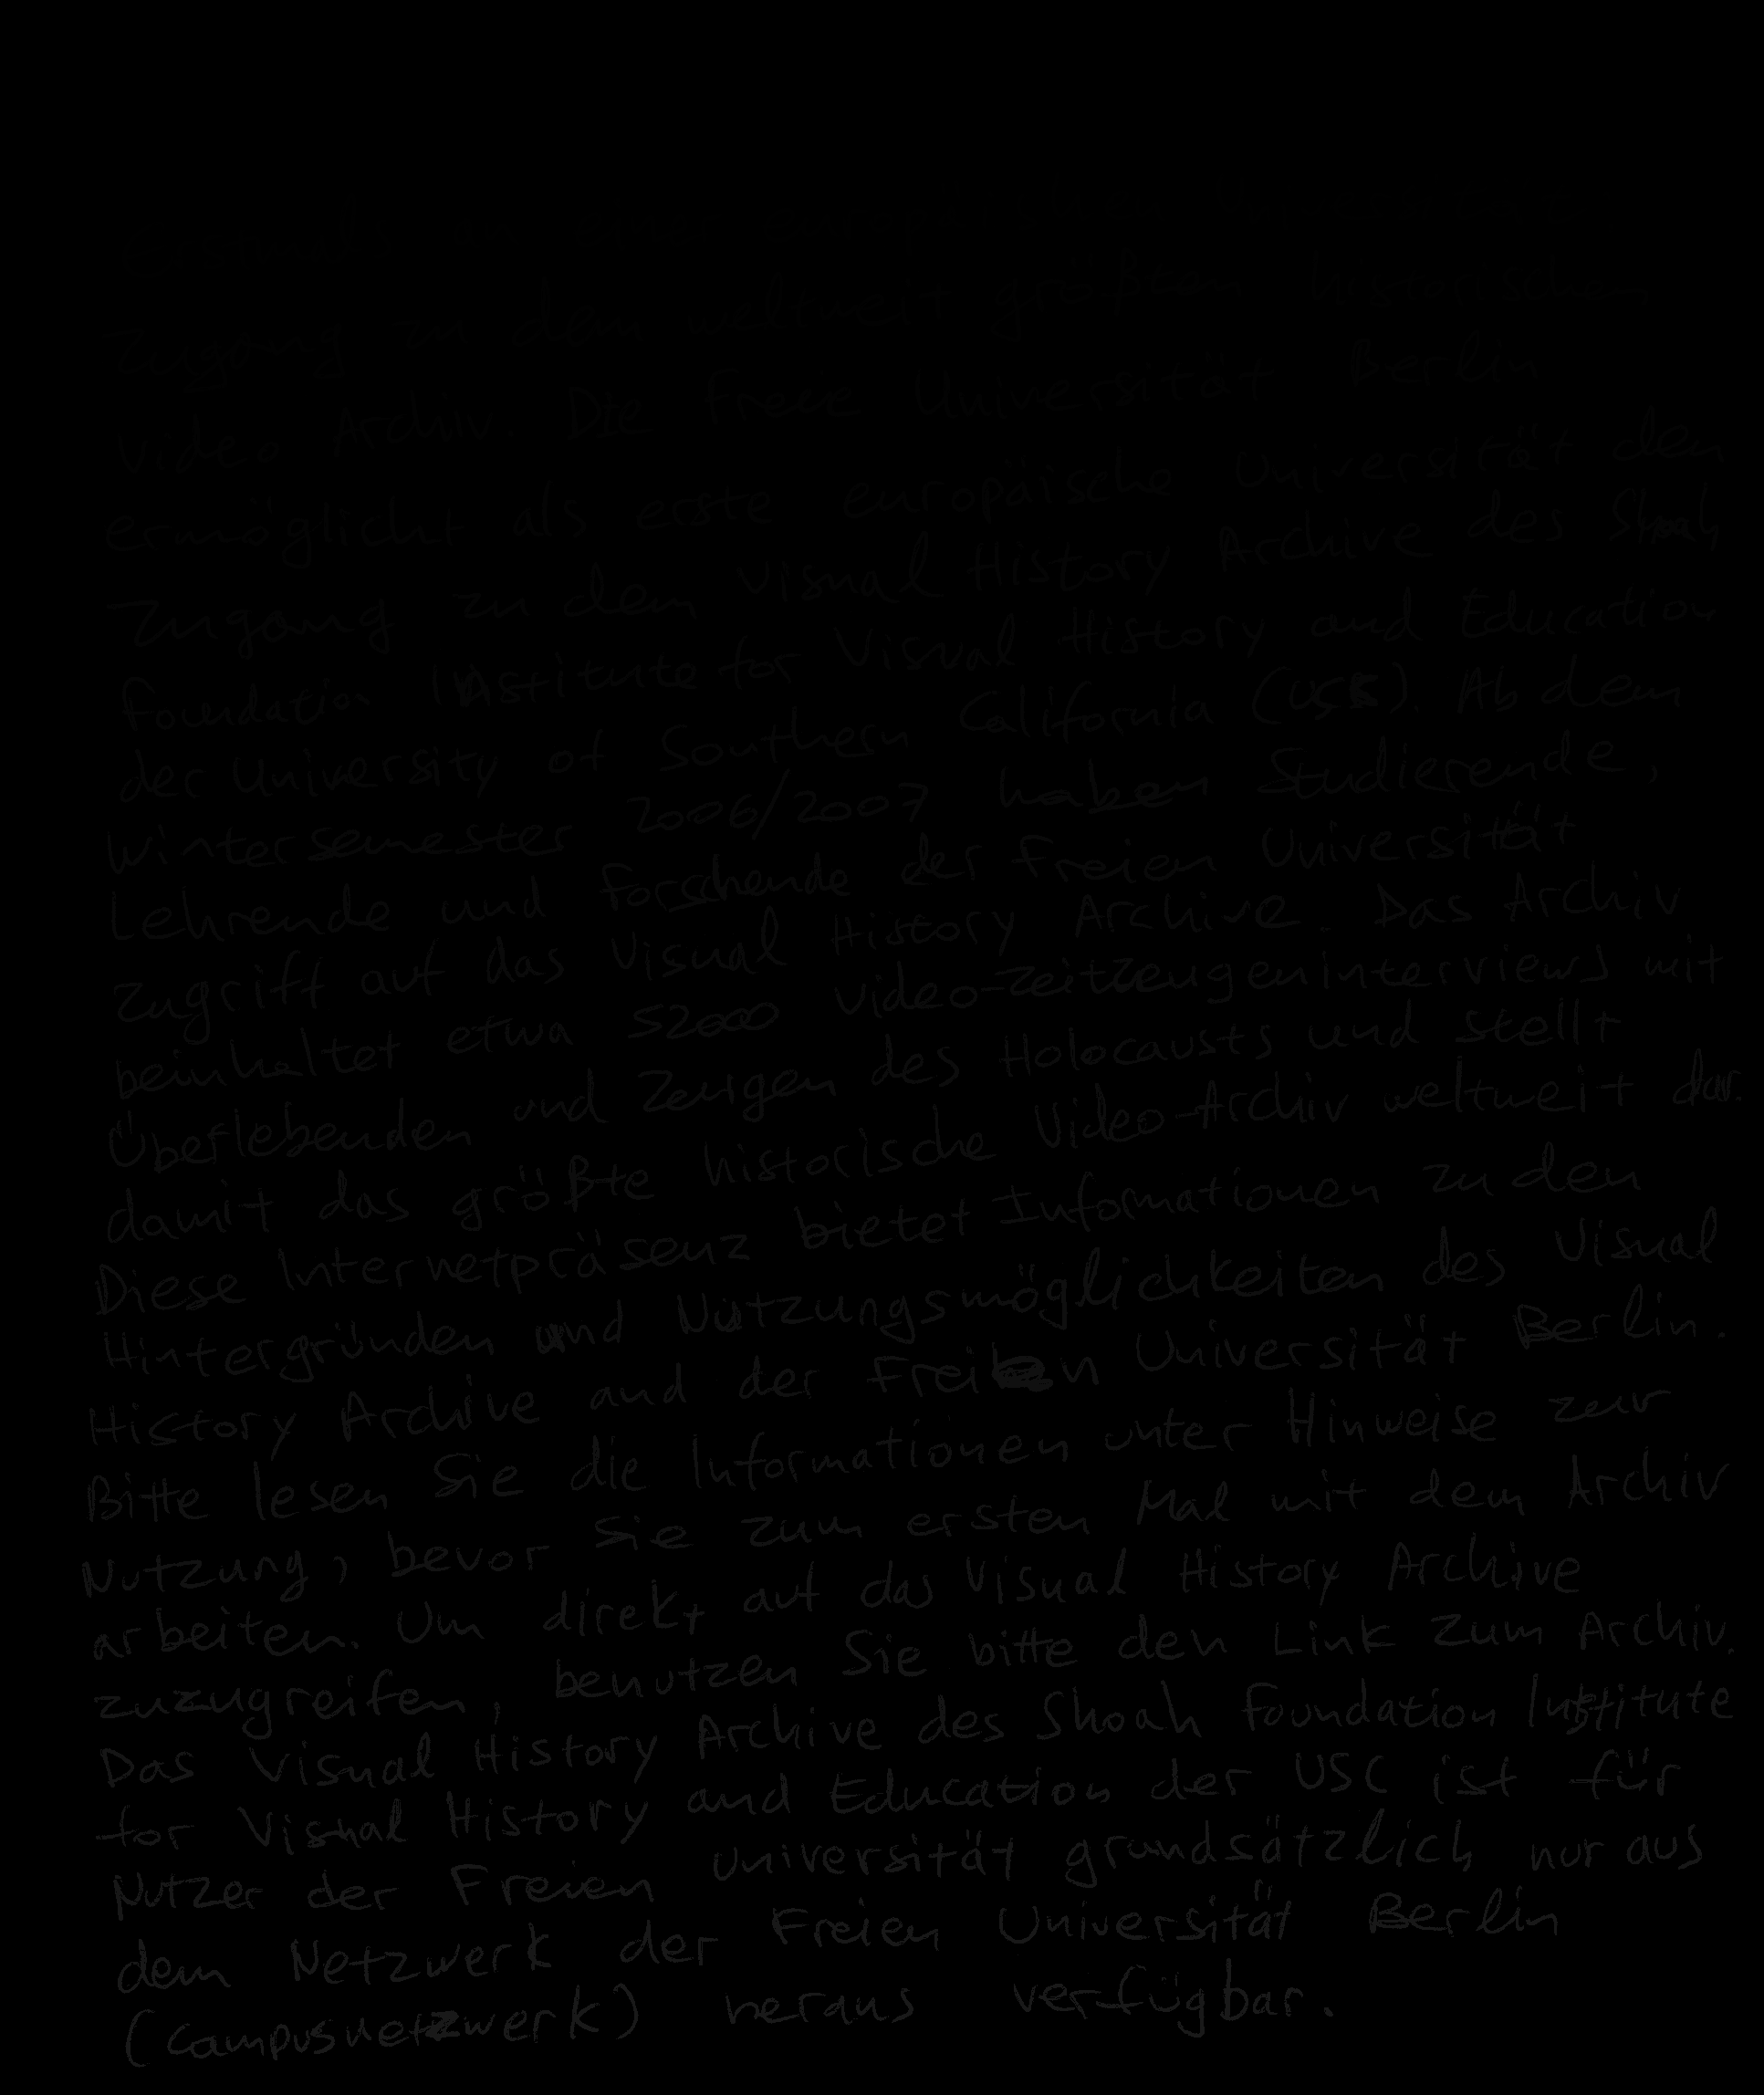 Zugang zu dem weltweit größten historischen
Video Archiv. Die Freie Universität Berlin
ermöglicht als erste europäische Universität den
Zugang zu dem Visual History Archive des Shoah
Foundation Institute for Visual History and Education
der University of Southern California (USC). Ab dem
Wintersemester 2006/2007 haben Studierende,
Lehrende und Forschende der Freien Universität
Zugriff auf das Visual History Archive. Das Archiv
beinhaltet etwa 52000 Video-Zeitzeugeninterviews mit
Überlebenden und Zeugen des Holocausts und stellt
damit das größte historische Video-Archiv weltweit dar.
Diese Internetpräsenz bietet Informationen zu den
Hintergründen und Nutzungsmöglichkeiten des Visual
History Archive and der Freien Universität Berlin.
Bitte lesen Sie die Informationen unter Hinweise zur
Nutzung, bevor Sie zum ersten Mal mit dem Archiv
arbeiten. Um direkt auf das Visual History Archive
zuzugreifen, benutzen Sie bitte den Link zum Archiv.
Das Visual History Archive des Shoah Foundation Institute
for Visual History and Education der USC ist für
Nutzer der Freien Universität grundsätzlich nur aus
dem Netzwerk der Freien Universität Berlin
(Campusnetzwerk) heraus verfügbar.